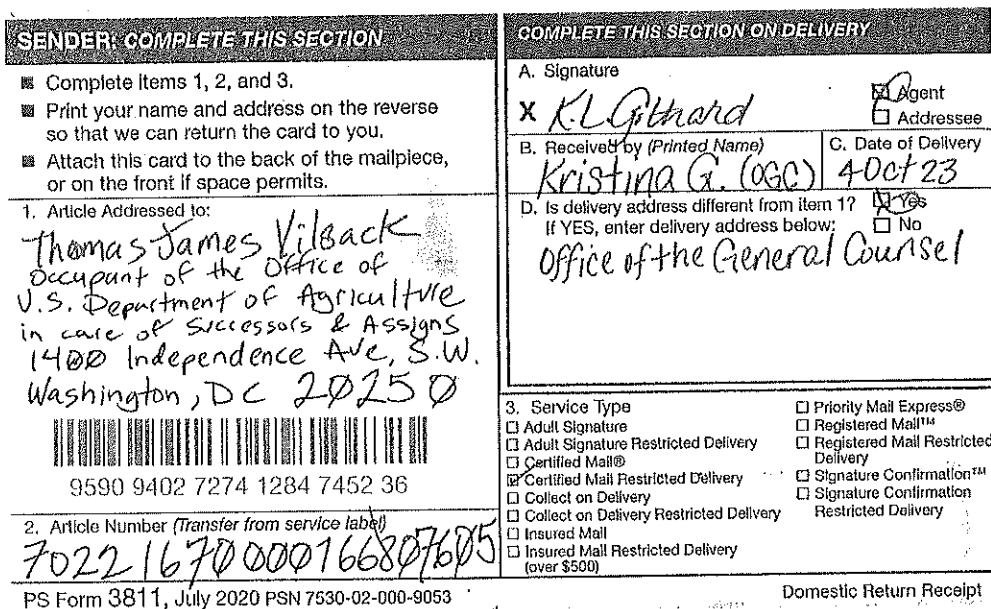 SENDER: COMPLETE THIS SECTION
■ Complete items 1, 2, and 3.
■ Print your name and address on the reverse
so that we can return the card to you.
■ Attach this card to the back of the mailpiece,
or on the front if space permits.
1. Article Addressed to:
Thomas James Vilsack
Occupant of the Office of
U.S. Department of Agriculture
in care of Successors & Assigns
1400 Independence Ave, S.W.
Washington, DC 20250
9590 9402 7274 1284 7452 36
2. Article Number (Transfer from service label)
7022 1670 0001 6680 7605
PS Form 3811, July 2020 PSN 7530-02-000-9053
COMPLETE THIS SECTION ON DELIVERY
A. Signature
X K.L
☒ Agent
☐ Addressee
B. Received by (Printed Name)
Kristina G. (OGC)
C. Date of Delivery
4 Oct 23
D. Is delivery address different from item 1? ☒ Yes
If YES, enter delivery address below: ☐ No
Office of the General Counsel
3. Service Type
☐ Adult Signature
☐ Adult Signature Restricted Delivery
☐ Certified Mail®
☑ Certified Mail Restricted Delivery
☐ Collect on Delivery
☐ Collect on Delivery Restricted Delivery
☐ Insured Mail
☐ Insured Mail Restricted Delivery
(over $500)
☐ Priority Mail Express®
☐ Registered Mail™
☐ Registered Mail Restricted
Delivery
☐ Signature Confirmation™
☐ Signature Confirmation
Restricted Delivery
Domestic Return Receipt